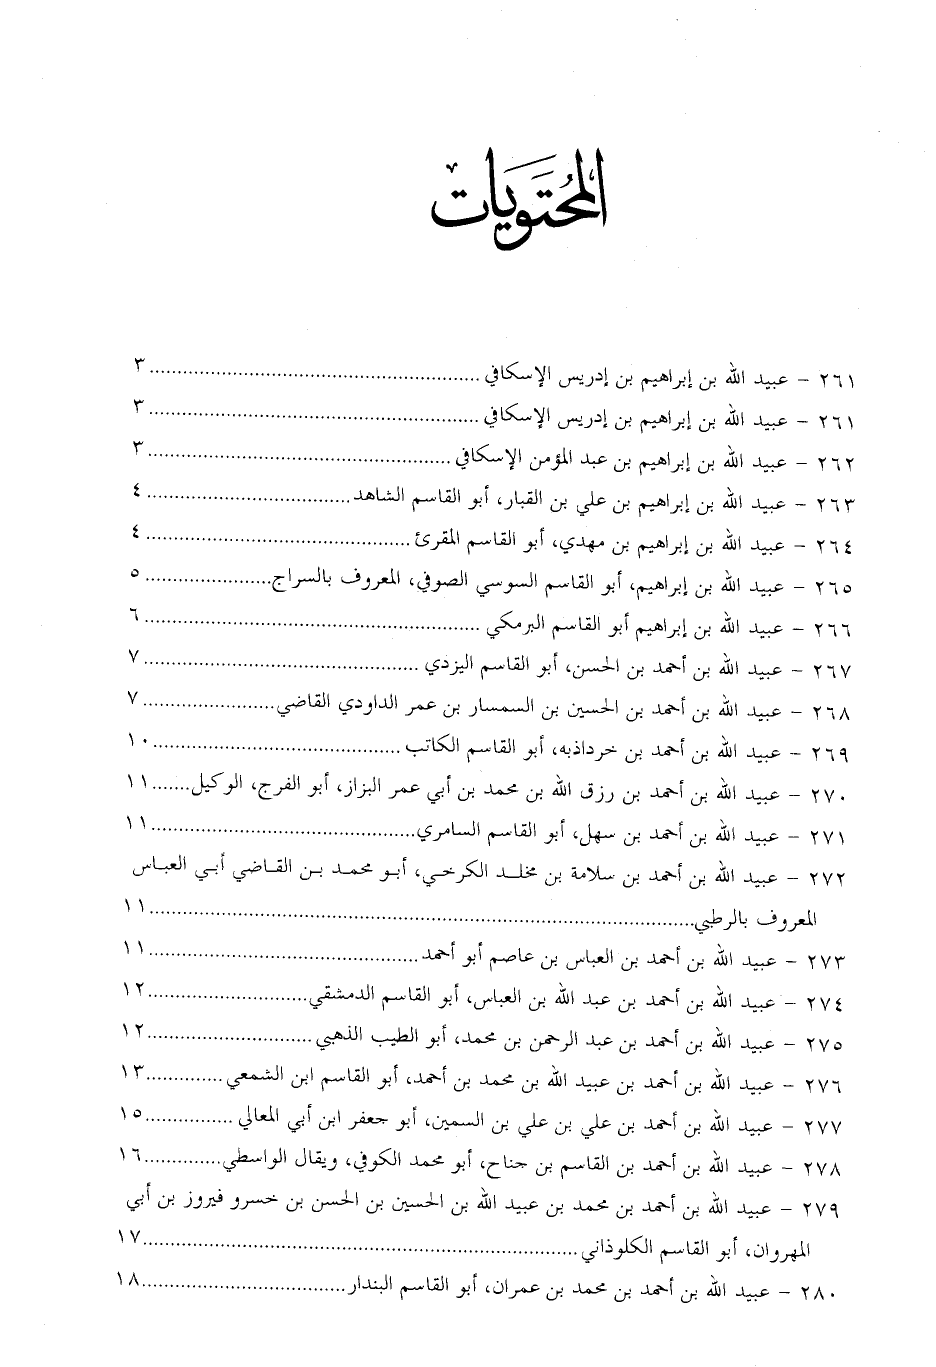 المحتويات
٢٦١ - عبيد الله بن إبراهيم بن إدريس الإسكافي ........ ٣
٢٦١ - عبيد الله بن إبراهيم بن إدريس الإسكافي ........ ٣
٢٦٢ - عبيد الله بن إبراهيم بن عبد المؤمن الإسكافي ........ ٣
٢٦٣ - عبيد الله بن إبراهيم بن علي بن القبار، أبو القاسم الشاهد ........ ٤
٢٦٤ - عبيد الله بن إبراهيم بن مهدي، أبو القاسم المقرئ ........ ٤
٢٦٥ - عبيد الله بن إبراهيم، أبو القاسم السوسي الصوفي، المعروف بالسراج ........ ٥
٢٦٦ - عبيد الله بن إبراهيم أبو القاسم البرمكي ........ ٦
٢٦٧ - عبيد الله بن أحمد بن الحسن، أبو القاسم اليزدي ........ ٧
٢٦٨ - عبيد الله بن أحمد بن الحسين بن السمسار بن عمر الداودي القاضي ........ ٧
٢٦٩ - عبيد الله بن أحمد بن خرداذبه، أبو القاسم الكاتب ........ ١٠
٢٧٠ - عبيد الله بن أحمد بن رزق الله بن محمد بن أبي عمر البزاز، أبو الفرج، الوكيل ....... ١١
٢٧١ - عبيد الله بن أحمد بن سهل، أبو القاسم السامري ........ ١١
٢٧٢ - عبيد الله بن أحمد بن سلامة بن مخلد الكرخي، أبو محمد بن القاضي أبي العباس
المعروف بالرطبي ........ ١١
٢٧٣ - عبيد الله بن أحمد بن العباس بن عاصم أبو أحمد ........ ١١
٢٧٤ - عبيد الله بن أحمد بن عبد الله بن العباس، أبو القاسم الدمشقي ........ ١٢
٢٧٥ - عبيد الله بن أحمد بن عبد الرحمن بن محمد، أبو الطيب الذهبي ........ ١٢
٢٧٦ - عبيد الله بن أحمد بن عبيد الله بن محمد بن أحمد، أبو القاسم ابن الشمعي ........ ١٣
٢٧٧ - عبيد الله بن أحمد بن علي بن علي بن السمين، أبو جعفر ابن أبي المعالي ........ ١٥
٢٧٨ - عبيد الله بن أحمد بن القاسم بن جناح، أبو محمد الكوفي، ويقال الواسطي ........ ١٦
٢٧٩ - عبيد الله بن أحمد بن محمد بن عبيد الله بن الحسين بن الحسن بن خسرو فيروز بن أبي
المهروان، أبو القاسم الكلوذاني ........ ١٧
٢٨٠ - عبيد الله بن أحمد بن محمد بن عمران، أبو القاسم البندار ........ ١٨